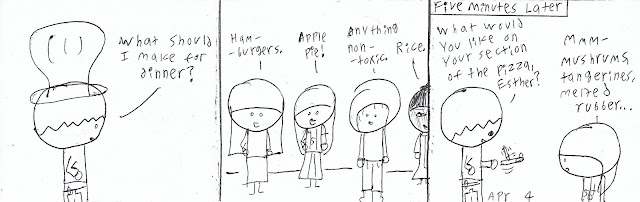 What should
I make for
dinner?
Ham-
-burgers.
Apple
Pie!
Anything
non-
-toxic.
Rice.
Five Minutes Later
What would
You like on
Your section
of the pizza,
Esther?
Mmm-
mushrums,
tangerines,
melted
rubber...
Apr 4